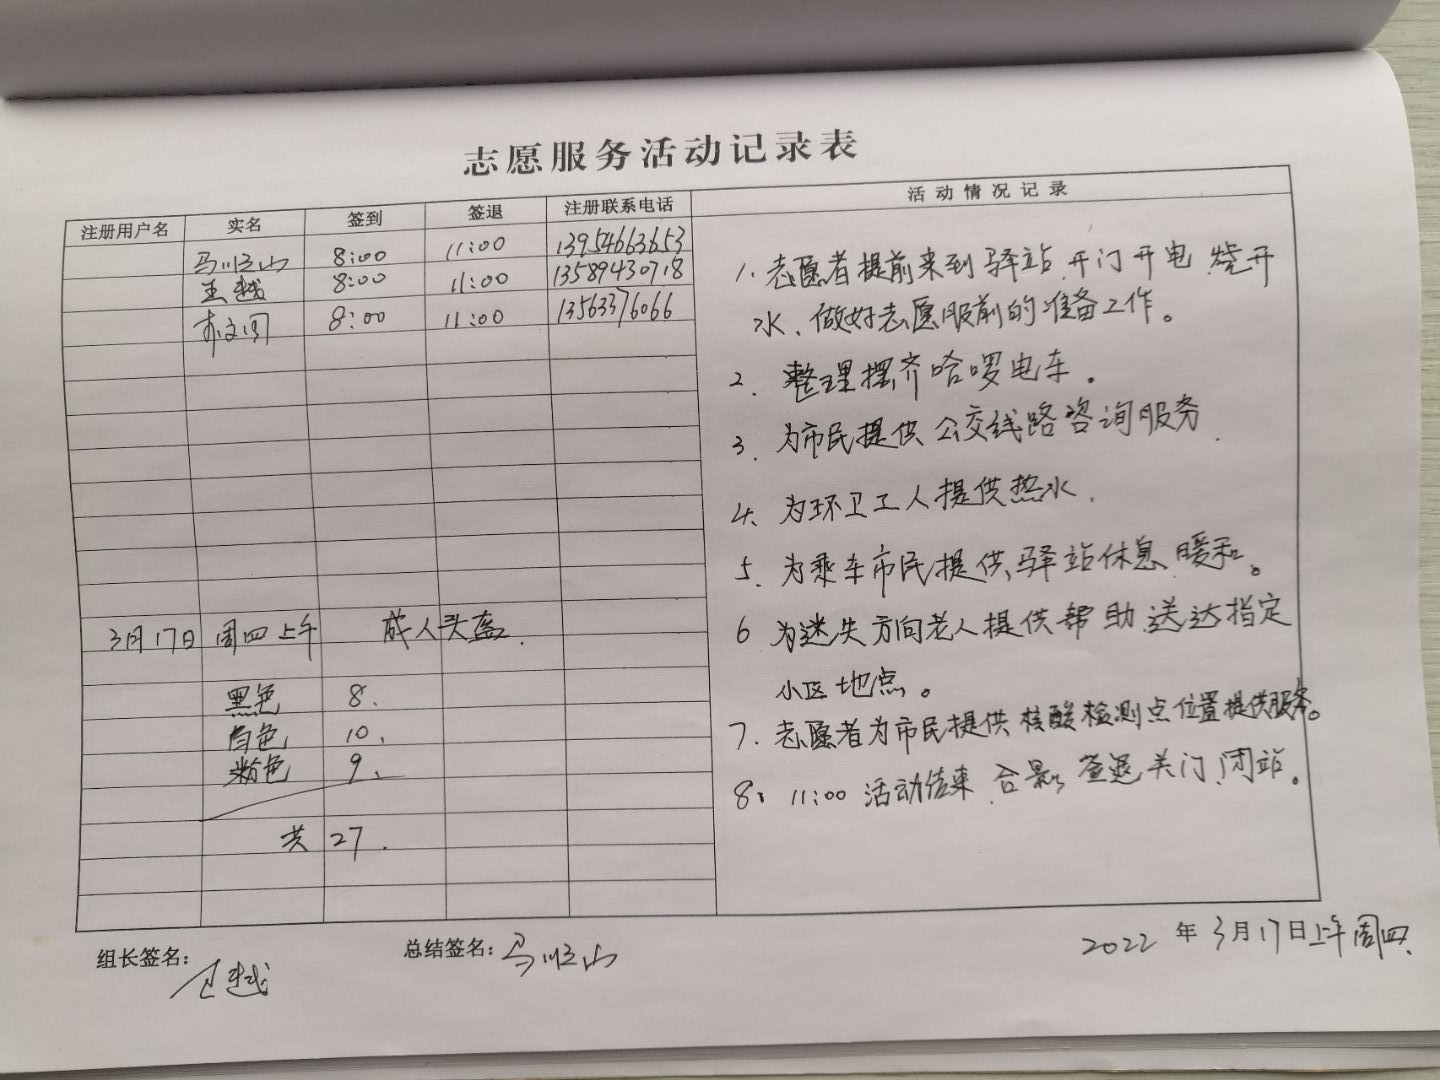 志愿服务活动记录表
注册用户名 实名 签到 签退 注册联系电话 活动情况记录
马顺山 8:00 11:00 13954663653
王越 8:00 11:00 13589430718
8:00 11:00 13563376066
3月17日 周四上午 成人头盔.
黑色 8.
白色 10.
粉色 9.
共 27.
1. 志愿者提前来到驿站 开门开电 烧开
水、做好志愿服前的准备工作。
2. 整理摆齐哈啰电车.
3. 为市民提供公交线路咨询服务.
4. 为环卫工人提供热水.
5. 为乘车市民提供驿站休息 暖和。
6 为迷失方向老人提供帮助 送达指定
小区地点。
7. 志愿者为市民提供核酸检测点位置提供服务。
8: 11:00 活动结束 合影 签退 关门 闭站。
组长签名: 王越 总结签名: 马顺山 2022 年 3月17日上午周四.